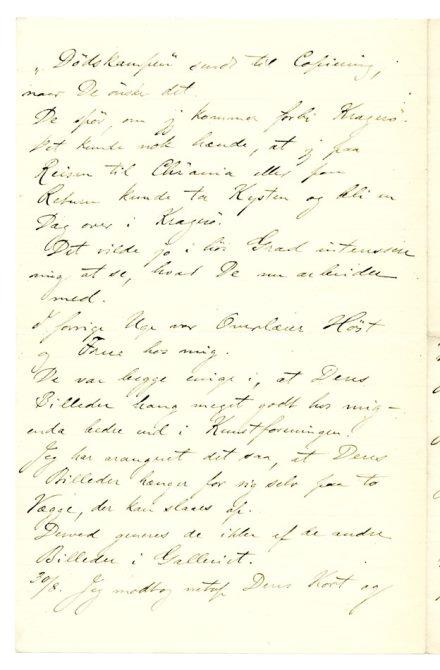 „Dödskampen" sendt til Copiering,
naar De önsker det.
De spör, om jeg kommer forbi Kragerö.
Det kunde nok hænde, at jeg paa
Reisen til Chr'ania eller paa
Return kunde ta Kysten og bli en
Dag over i Kragerö.
Det vilde jo i höi Grad interessere
mig at se, hvad De nu arbeider
med.
I forrige Uge var Overlærer Höst
og Frue hos mig.
De var begge enige i, at Deres
Billeder hang meget godt hos mig –
enda bedre end i Kunstforeningen.
Jeg har arangeret det saa, at Deres
Billeder hænger for sig selv paa to
Vægge, der kan slaaes af.
Derved generes de ikke af de andre
Billeder i Galleriet.
30/8. Jeg modtog netop Deres Kort og